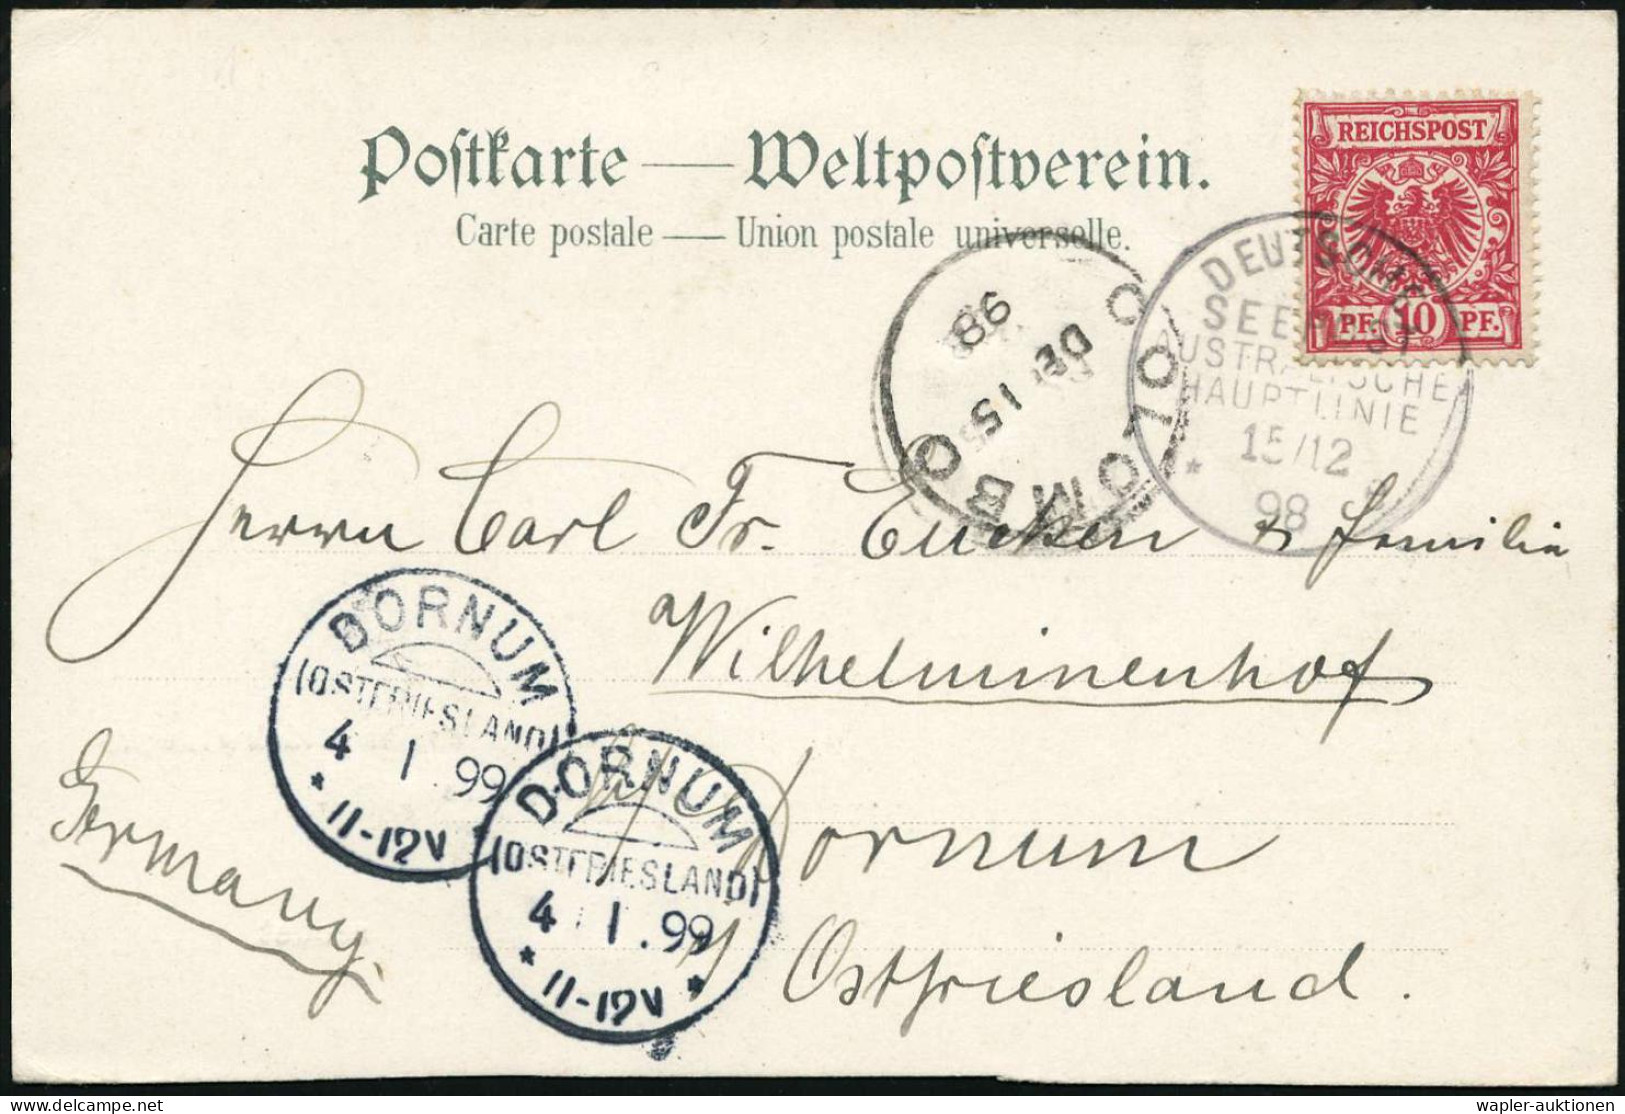 Postkarte — Weltpostverein.
Carte postale — Union postale universelle.
REICHSPOST
PF. 10 PF.
DEUTSCHE
SEEPOST
AUSTRALISCHE
HAUPTLINIE
15/12
98
COLOMBO
DE 15
98
Herrn Carl Fr. Eucken & Familie
Wilhelminenhof
Dornum
Ostfriesland.
Germany.
DORNUM
(OSTFRIESLAND)
4 1.99
* 11-12V
DORNUM
(OSTFRIESLAND)
4 1.99
* 11-12V *
wapler-auktionen